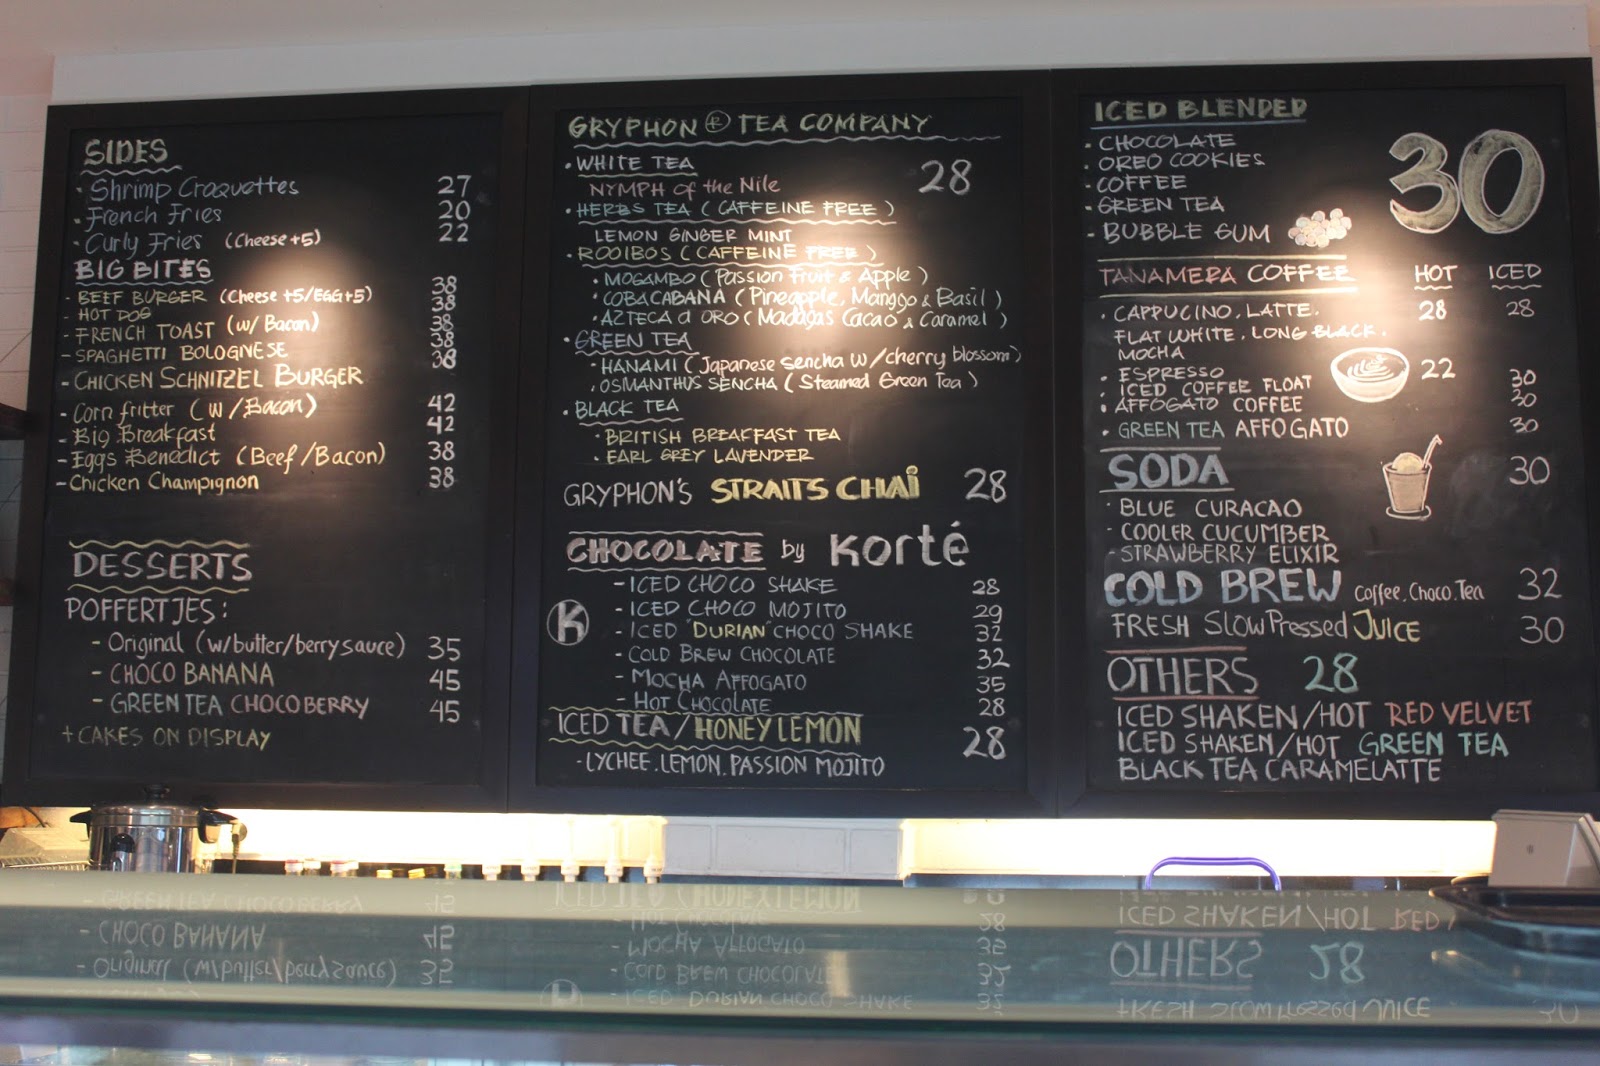 SIDES
• Shrimp Croquettes 27
• French Fries 20
• Curly Fries (Cheese +5) 22
BIG BITES
- BEEF BURGER (Cheese +5/EGG+5) 38
- HOT DOG 38
- FRENCH TOAST (w/ Bacon) 38
- SPAGHETTI BOLOGNESE 38
- CHICKEN SCHNITZEL BURGER 38
- Corn fritter (w/Bacon) 42
- Big Breakfast 42
- Eggs Benedict (Beef/Bacon) 38
- Chicken Champignon 38
DESSERTS
POFFERTJES:
- Original (w/butter/berry sauce) 35
- CHOCO BANANA 45
- GREEN TEA CHOCO BERRY 45
+ CAKES ON DISPLAY
GRYPHON ® TEA COMPANY
• WHITE TEA 28
NYMPH of the Nile
• HERBS TEA (CAFFEINE FREE)
LEMON GINGER MINT
• ROOIBOS (CAFFEINE FREE)
• MOGAMBO (Passion Fruit & Apple)
• COBACABANA (Pineapple, Manggo & Basil)
• AZTECA d ORO (Madagas Cacao & Caramel)
• GREEN TEA
• HANAMI (Japanese Sencha w/cherry blossom)
• OSMANTHUS SENCHA (Steamed Green Tea)
• BLACK TEA
• BRITISH BREAKFAST TEA
• EARL GREY LAVENDER
GRYPHON'S STRAITS CHAI 28
CHOCOLATE by Korté
K
- ICED CHOCO SHAKE 28
- ICED CHOCO MOJITO 29
- ICED "DURIAN" CHOCO SHAKE 32
- COLD BREW CHOCOLATE 32
- MOCHA AFFOGATO 35
- HOT CHOCOLATE 28
ICED TEA/HONEY LEMON 28
- LYCHEE. LEMON. PASSION MOJITO
ICED BLENDED 30
• CHOCOLATE
• OREO COOKIES
• COFFEE
• GREEN TEA
• BUBBLE GUM
TANAMERA COFFEE HOT ICED
• CAPPUCINO. LATTE. 28 28
FLAT WHITE. LONG BLACK.
MOCHA
• ESPRESSO 22
• ICED COFFEE FLOAT 30
• AFFOGATO COFFEE 30
• GREEN TEA AFFOGATO 30
SODA 30
• BLUE CURACAO
• COOLER CUCUMBER
- STRAWBERRY ELIXIR
COLD BREW Coffee. Choco. Tea 32
FRESH Slow Pressed JUICE 30
OTHERS 28
ICED SHAKEN/HOT RED VELVET
ICED SHAKEN/HOT GREEN TEA
BLACK TEA CARAMELATTE